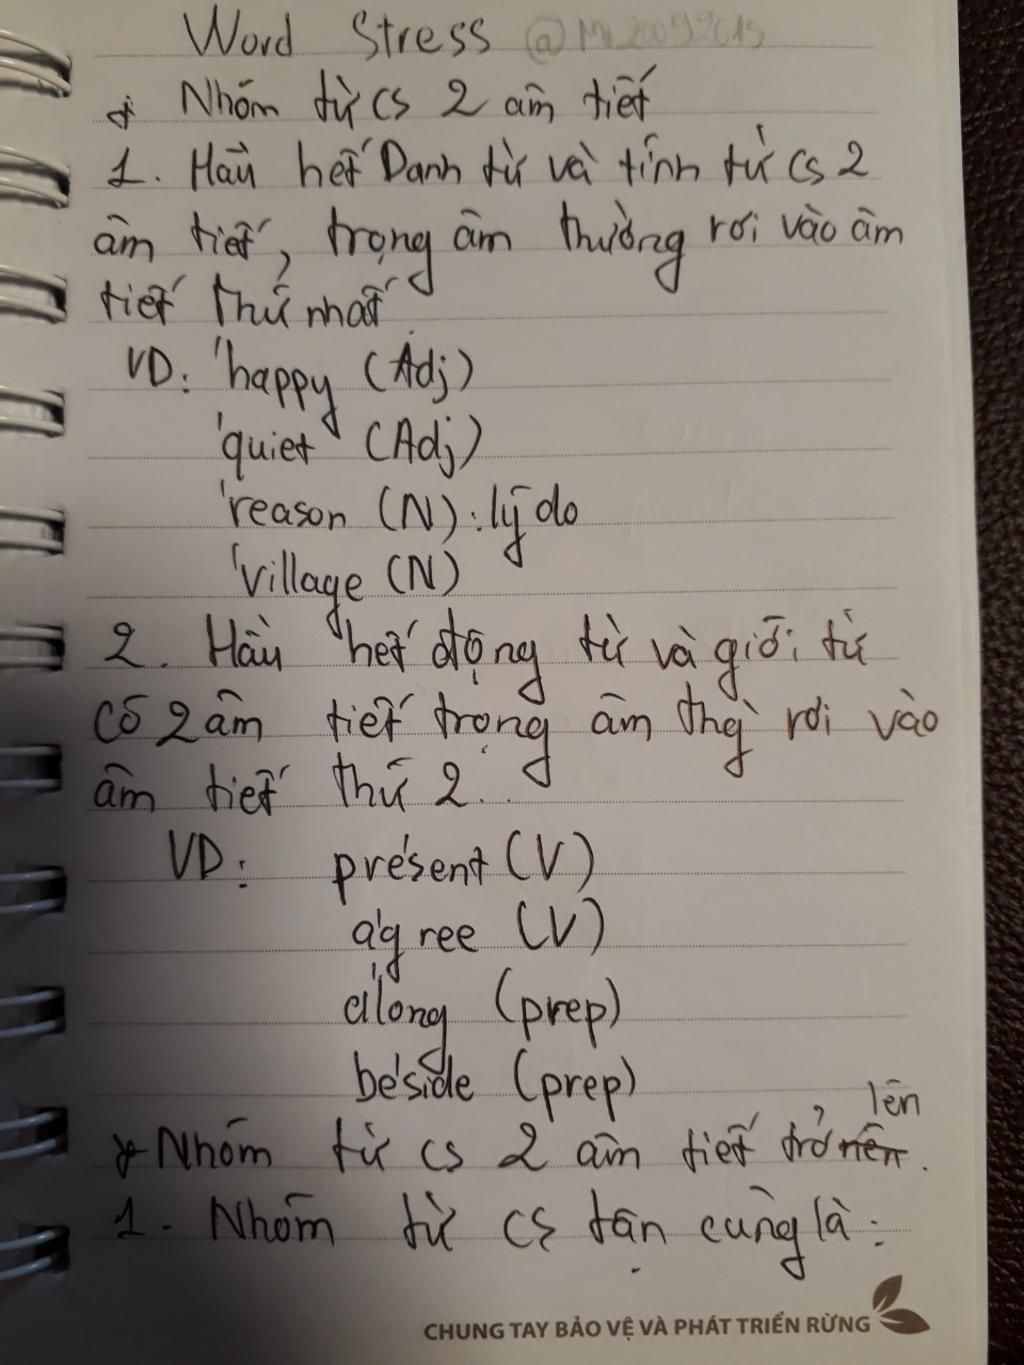 Word Stress @Mi20092015
* Nhóm từ có 2 âm tiết
1. Hầu hết Danh từ và tính từ có 2
âm tiết, trọng âm thường rơi vào âm
tiết thứ nhất.
VD: 'happy (Adj)
'quiet (Adj)
'reason (N): lý do
'village (N)
2. Hầu hết động từ và giới từ
có 2 âm tiết trọng âm thg` rơi vào
âm tiết thứ 2.
VD: pre'sent (V)
a'gree (V)
a'long (prep)
be'side (prep)
lên
* Nhóm từ có 2 âm tiết trở nên.
1. Nhóm từ có tận cùng là:
CHUNG TAY BẢO VỆ VÀ PHÁT TRIỂN RỪNG